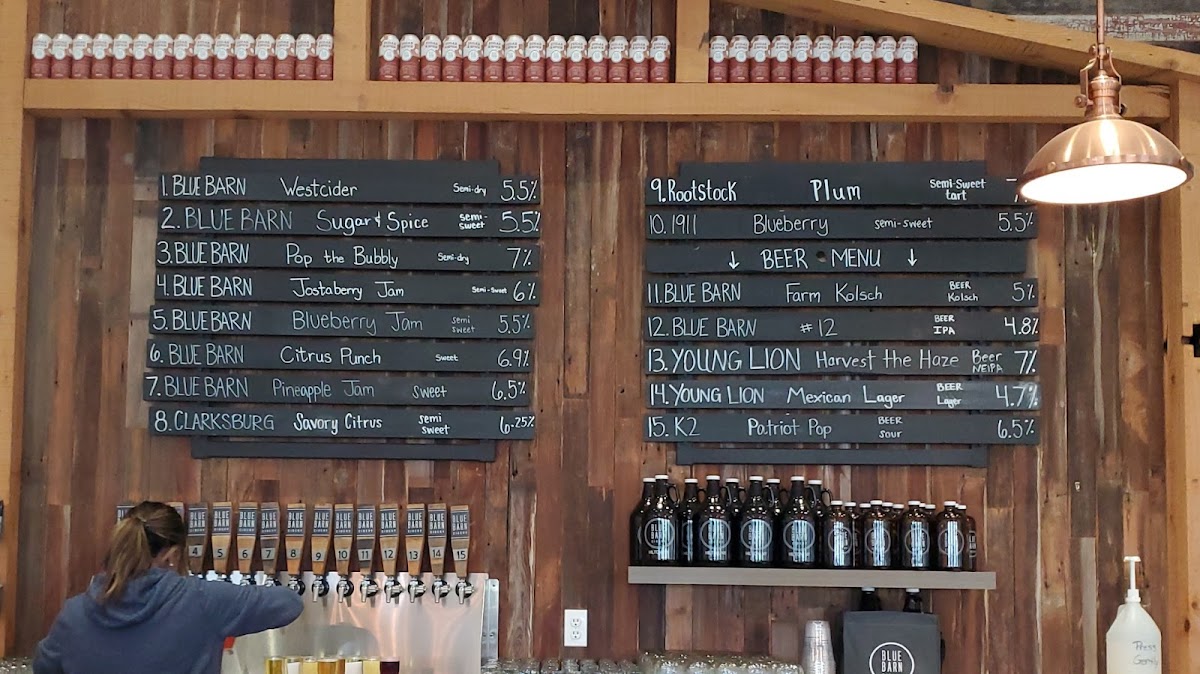 1. BLUE BARN Westcider Semi-dry 5.5%
2. BLUE BARN Sugar & Spice semi-sweet 5.5%
3. BLUE BARN Pop the Bubbly Semi-dry 7%
4. BLUE BARN Jostaberry Jam Semi-Sweet 6%
5. BLUE BARN Blueberry Jam semi sweet 5.5%
6. BLUE BARN Citrus Punch Sweet 6.9%
7. BLUE BARN Pineapple Jam Sweet 6.5%
8. CLARKSBURG Savory Citrus semi sweet 6.25%
9. Rootstock Plum Semi-Sweet tart
10. 1911 Blueberry semi-sweet 5.5%
↓ BEER MENU ↓
11. BLUE BARN Farm Kolsch BEER Kolsch 5%
12. BLUE BARN #12 BEER IPA 4.8%
13. YOUNG LION Harvest the Haze Beer NEIPA 7%
14. YOUNG LION Mexican Lager BEER Lager 4.7%
15. K2 Patriot Pop BEER sour 6.5%
BLUE BARN 4
BLUE BARN 5
BLUE BARN 6
BLUE BARN 7
BLUE BARN 8
BLUE BARN 9
BLUE BARN 10
BLUE BARN 11
BLUE BARN 12
BLUE BARN 13
BLUE BARN 14
BLUE BARN 15
BLUE BARN
BLUE BARN
BLUE BARN
BLUE BARN
BLUE BARN
Press Gently